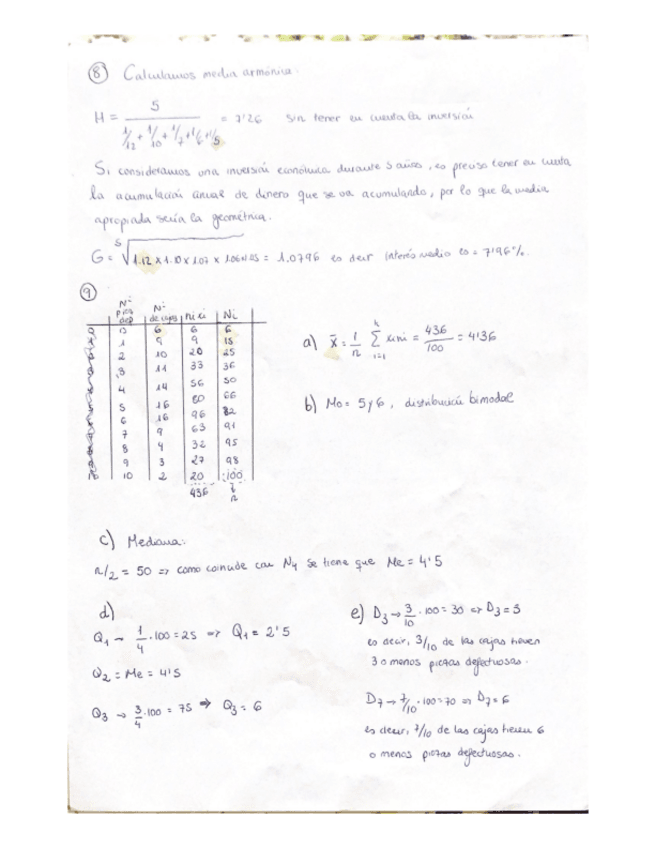 8 Calculamos media armónica:
H = 5 / (1/12 + 1/10 + 1/7 + 1/6 + 1/5) = 7'26 sin tener en cuenta la inversión
Si consideramos una inversión económica durante 5 años, es preciso tener en cuenta
la acumulación anual de dinero que se va acumulando, por lo que la media
apropiada sería la geométrica.
G = 5√1.12 x 1.10 x 1.07 x 1.06 x 1.05 = 1.0796 es decir interés medio es = 7'96%.
9
Nº piezas def | Nº de cajas | ni xi | Ni
0 6 6 6
1 9 9 15
2 10 20 25
3 11 33 36
4 14 56 50
5 16 80 66
6 16 96 82
7 9 63 91
8 4 32 95
9 3 27 98
10 2 20 100
436 n
a) x̄ = 1/n Σ xi ni = 436/100 = 4'36
b) Mo = 5 y 6, distribución bimodal
c) Mediana:
n/2 = 50 => como coincide con N4 se tiene que Me = 4'5
d)
Q1 → 1/4 · 100 = 25 => Q1 = 2'5
Q2 = Me = 4'5
Q3 → 3/4 · 100 = 75 => Q3 = 6
e) D3 → 3/10 · 100 = 30 => D3 = 3
es decir, 3/10 de las cajas tienen
3 o menos piezas defectuosas.
D7 → 7/10 · 100 = 70 => D7 = 6
es decir, 7/10 de las cajas tienen 6
o menos piezas defectuosas.